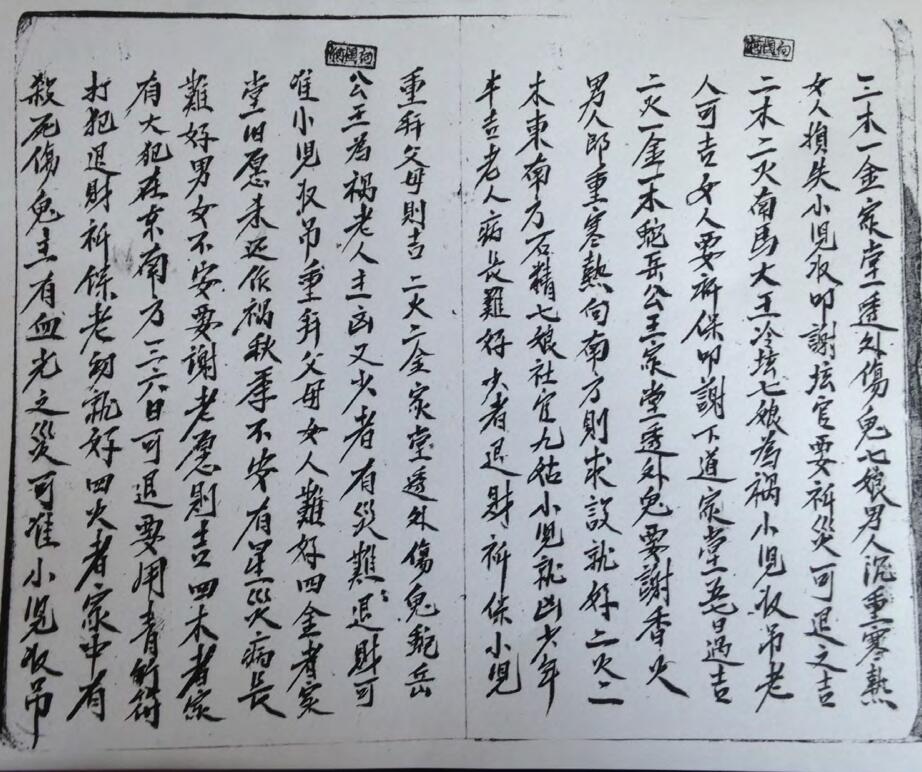 三木一金家堂一透外傷鬼七娘男人沉重寒熱
女人損失小児収叩謝坛官要祈災可退之吉
二木二火南馬大王冷坛七娘為禍小児収吊老
人可吉女人要祈保叩謝下道家堂五七日過吉
二火一金一木岳公王家堂一透外鬼要謝香火
男人郎重寒熱向南方則求設就好二火二
木東南方石精七娘社官九姑小児就凶少年
半吉老人病長難好少者退財祈保小児
重拜父母則吉二火二金家堂透外傷鬼岳
公王為禍老人主凶又少者有災難退財可
准小児収吊重拜父母女人難好四金者家
堂旧愿未还作禍秋季不安有星災病長
難好男女不安要謝老愿則吉四木者家
有大犯在东南方三六日可退要用青竹
打犯退財祈保老初就好四火者家中有
殺死傷鬼主有血光之災可准小児収吊